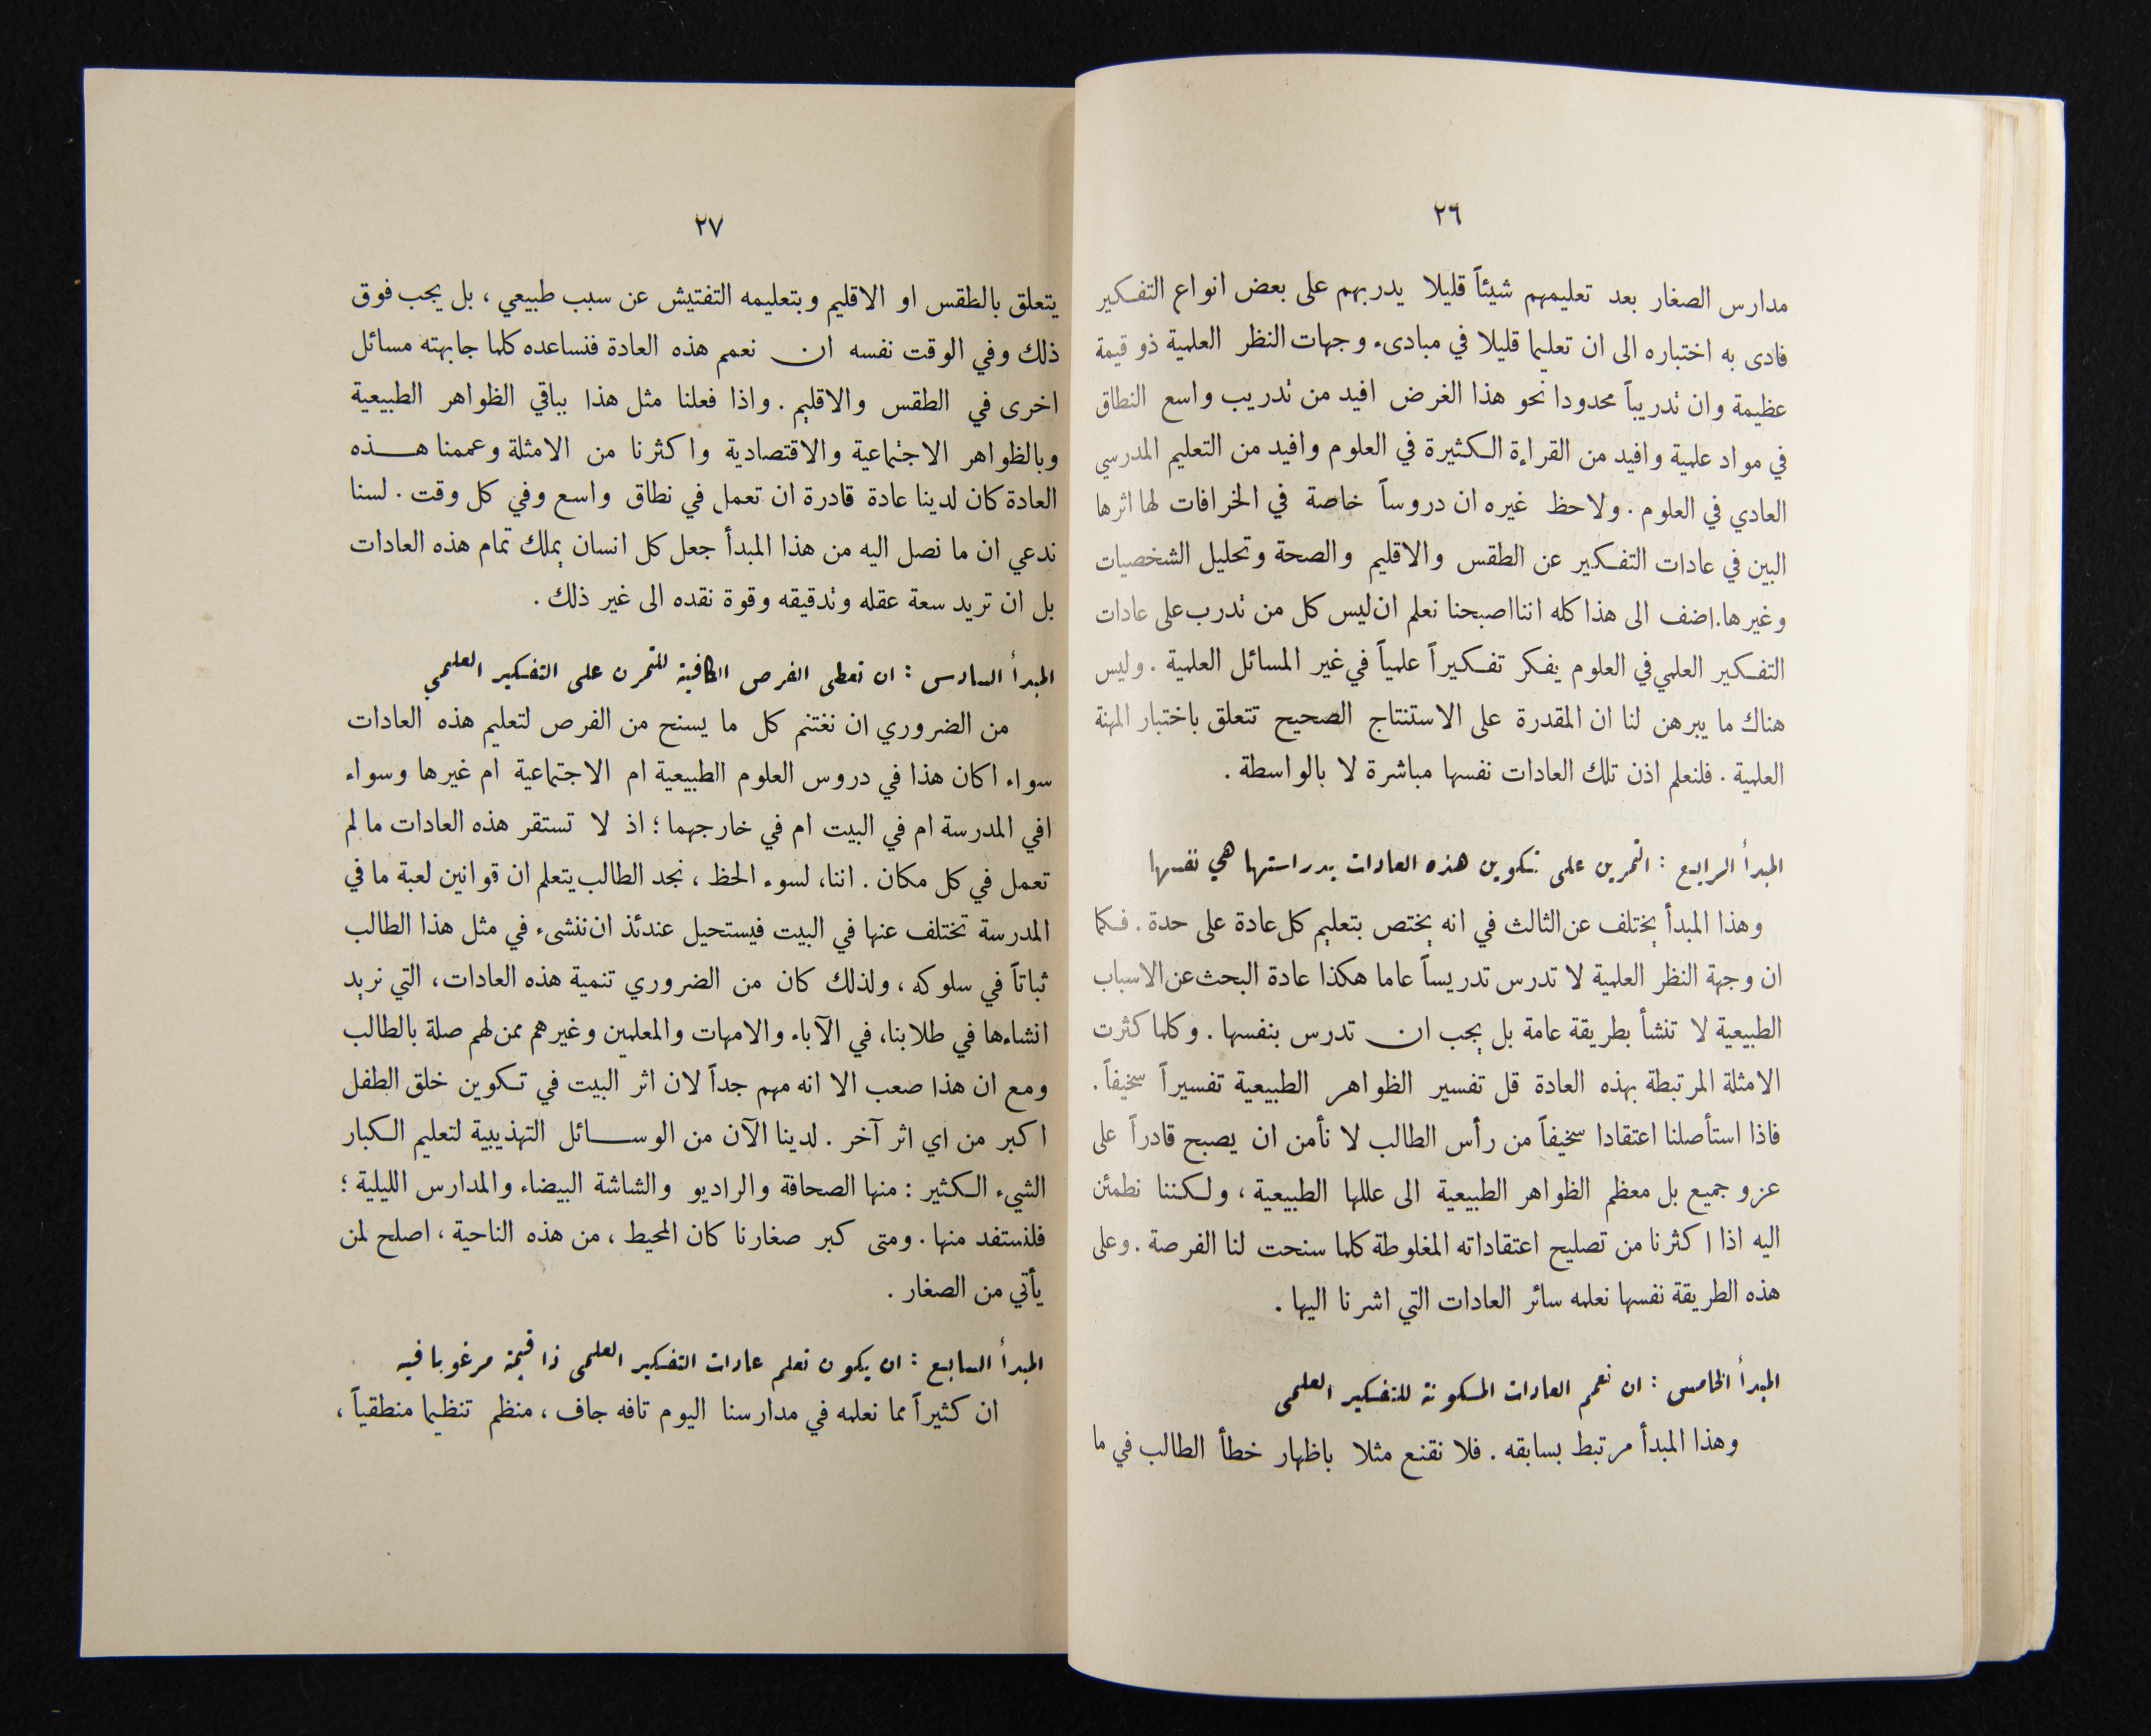 ٢٦
مدارس الصغار بعد تعليمهم شيئاً قليلا يدربهم على بعض انواع التفكير
فادى به اختباره الى ان تعليما قليلا في مبادىء وجهات النظر العلمية ذو قيمة
عظيمة وان تدريباً محدودا نحو هذا الغرض افيد من تدريب واسع النطاق
في مواد علمية وافيد من القراءة الكثيرة في العلوم وافيد من التعليم المدرسي
العادي في العلوم . ولاحظ غيره ان دروساً خاصة في الخرافات لها اثرها
البين في عادات التفكير عن الطقس والاقليم والصحة وتحليل الشخصيات
وغيرها. اضف الى هذا كله اننا اصبحنا نعلم ان ليس كل من تدرب على عادات
التفكير العلمي في العلوم يفكر تفكيراً علمياً في غير المسائل العلمية . وليس
هناك ما يبرهن لنا ان المقدرة على الاستنتاج الصحيح تتعلق باختبار المهنة
العلمية . فلنعلم اذن تلك العادات نفسها مباشرة لا بالواسطة .
المبدأ الرابع : التمرين على تكوين هذه العادات بدراستها هي نفسها
وهذا المبدأ يختلف عن الثالث في انه يختص بتعليم كل عادة على حدة . فكما
ان وجهة النظر العلمية لا تدرس تدريساً عاما هكذا عادة البحث عن الاسباب
الطبيعية لا تنشأ بطريقة عامة بل يجب ان تدرس بنفسها . وكلما كثرت
الامثلة المرتبطة بهذه العادة قل تفسير الظواهر الطبيعية تفسيراً سخيفاً .
فاذا استأصلنا اعتقادا سخيفاً من رأس الطالب لا نأمن ان يصبح قادراً على
عزو جميع بل معظم الظواهر الطبيعية الى عللها الطبيعية ، ولكننا نطمئن
اليه اذا اكثرنا من تصليح اعتقاداته المغلوطة كلما سنحت لنا الفرصة . وعلى
هذه الطريقة نفسها نعلمه سائر العادات التي اشرنا اليها .
المبدأ الخامس : ان نعمم العادات المكونة للتفكير العلمي
وهذا المبدأ مرتبط بسابقه . فلا نقنع مثلا باظهار خطأ الطالب في ما
٢٧
يتعلق بالطقس او الاقليم وبتعليمه التفتيش عن سبب طبيعي ، بل يجب فوق
ذلك وفي الوقت نفسه ان نعمم هذه العادة فنساعده كلما جابهته مسائل
اخرى في الطقس والاقليم . واذا فعلنا مثل هذا بباقي الظواهر الطبيعية
وبالظواهر الاجتماعية والاقتصادية واكثرنا من الامثلة وعممنا هذه
العادة كان لدينا عادة قادرة ان تعمل في نطاق واسع وفي كل وقت . لسنا
ندعي ان ما نصل اليه من هذا المبدأ جعل كل انسان يملك تمام هذه العادات
بل ان تريد سعة عقله وتدقيقه وقوة نقده الى غير ذلك .
المبدأ السادس : ان نعطى الفرص الكافية للتمرن على التفكير العلمي
من الضروري ان نغتنم كل ما يسنح من الفرص لتعليم هذه العادات
سواء اكان هذا في دروس العلوم الطبيعية ام الاجتماعية ام غيرها وسواء
افي المدرسة ام في البيت ام في خارجهما ؛ اذ لا تستقر هذه العادات ما لم
تعمل في كل مكان . اننا، لسوء الحظ ، نجد الطالب يتعلم ان قوانين لعبة ما في
المدرسة تختلف عنها في البيت فيستحيل عندئذ ان ننشىء في مثل هذا الطالب
ثباتاً في سلوكه ، ولذلك كان من الضروري تنمية هذه العادات ، التي نريد
انشاءها في طلابنا، في الآباء والامهات والمعلمين وغيرهم ممن لهم صلة بالطالب
ومع ان هذا صعب الا انه مهم جداً لان اثر البيت في تكوين خلق الطفل
اكبر من اي اثر آخر . لدينا الآن من الوسائل التهذيبية لتعليم الكبار
الشيء الكثير : منها الصحافة والراديو والشاشة البيضاء والمدارس الليلية ؛
فلنستفد منها . ومتى كبر صغارنا كان المحيط ، من هذه الناحية ، اصلح لمن
يأتي من الصغار .
المبدأ السابع : ان يكون تعلم عادات التفكير العلمى ذا قيمة مرغوبا فيه
ان كثيراً مما نعلمه في مدارسنا اليوم تافه جاف ، منظم تنظيما منطقياً ،